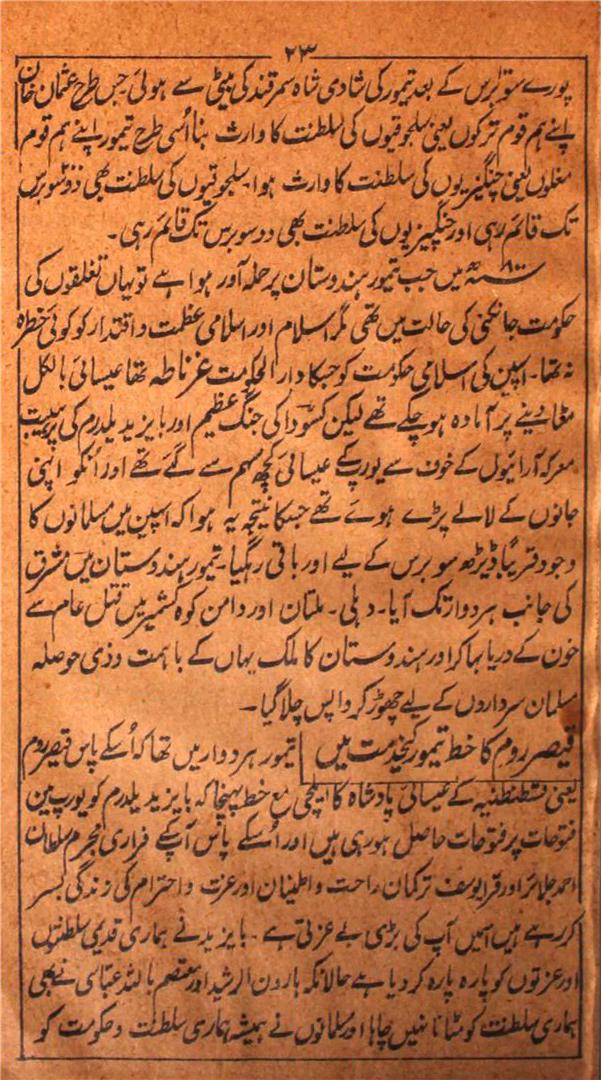 ۲۳
پورے سو برس کے بعد تیمور کی شادی شاہ سمرقند کی بیٹی سے ہوئی جس طرح عثمان خان
اپنے ہم قوم ترکوں یعنی سلجوقیوں کی سلطنت کا وارث بنا اُسی طرح تیمور اپنے ہم قوم
مغلوں یعنی چنگیزیوں کی سلطنت کا وارث ہوا۔ سلجوقیوں کی سلطنت بھی دو سو برس
تک قائم رہی اور چنگیزیوں کی سلطنت بھی دو سو برس تک قائم رہی۔
میں جب تیمور ہندوستان پر حملہ آور ہوا ہے تو یہاں تغلقوں کی
حکومت جانکنی کی حالت میں تھی مگر اسلام اور اسلامی عظمت و اقتدار کو کوئی خطرہ
نہ تھا۔ اسپین کی اسلامی حکومت کو جسکا دارالحکومت غرناطہ تھا عیسائی بالکل
مٹا دینے پر آمادہ ہو چکے تھے لیکن کسووا کی جنگ عظیم اور بایزید یلدرم کی پرہیبت
معرکہ آرائیوں کے خوف سے یورپ کے عیسائی کچھ سہم سے گئے تھے اور انکو اپنی
جانوں کے لالے پڑے ہوئے تھے جسکا نتیجہ یہ ہوا کہ اسپین میں مسلمانوں کا
وجود قریباً ڈیڑھ سو برس کے لیے اور باقی رہگیا۔ تیمور ہندوستان میں مشرق
کی جانب ہردوار تک آیا۔ دہلی۔ ملتان اور دامن کوہ کشمیر میں قتل عام سے
خون کے دریا بہا کر اور ہندوستان کا ملک یہاں کے باہمت و ذی حوصلہ
مسلمان سرداروں کے لیے چھوڑ کر واپس چلا گیا۔
قیصر روم کا خط تیمور کیخدمت میں تیمور ہردوار میں تھا کہ اُسکے پاس قیصر روم
یعنی قسطنطنیہ کے عیسائی پادشاہ کا ایلچی مع خط پہنچا کہ بایزید یلدرم کو یورپ مین
فتوحات پر فتوحات حاصل ہو رہی ہیں اور اُسکے پاس آپ کے فراری مجرم سلطان
احمد جلائر اور قرا یوسف ترکمان راحت و اطمینان اور عزت و احترام کی زندگی بسر
کر رہے ہیں اسمیں آپ کی بڑی بے عزتی ہے۔ بایزید نے ہماری قدیمی سلطنتوں
اور عزتوں کو پارہ پارہ کر دیا ہے حالانکہ ہارون الرشید اور معتصم باللہ عباسی نے بھی
ہماری سلطنت کو مٹانا نہیں چاہا اور مسلمانوں نے ہمیشہ ہماری سلطنت و حکومت کو